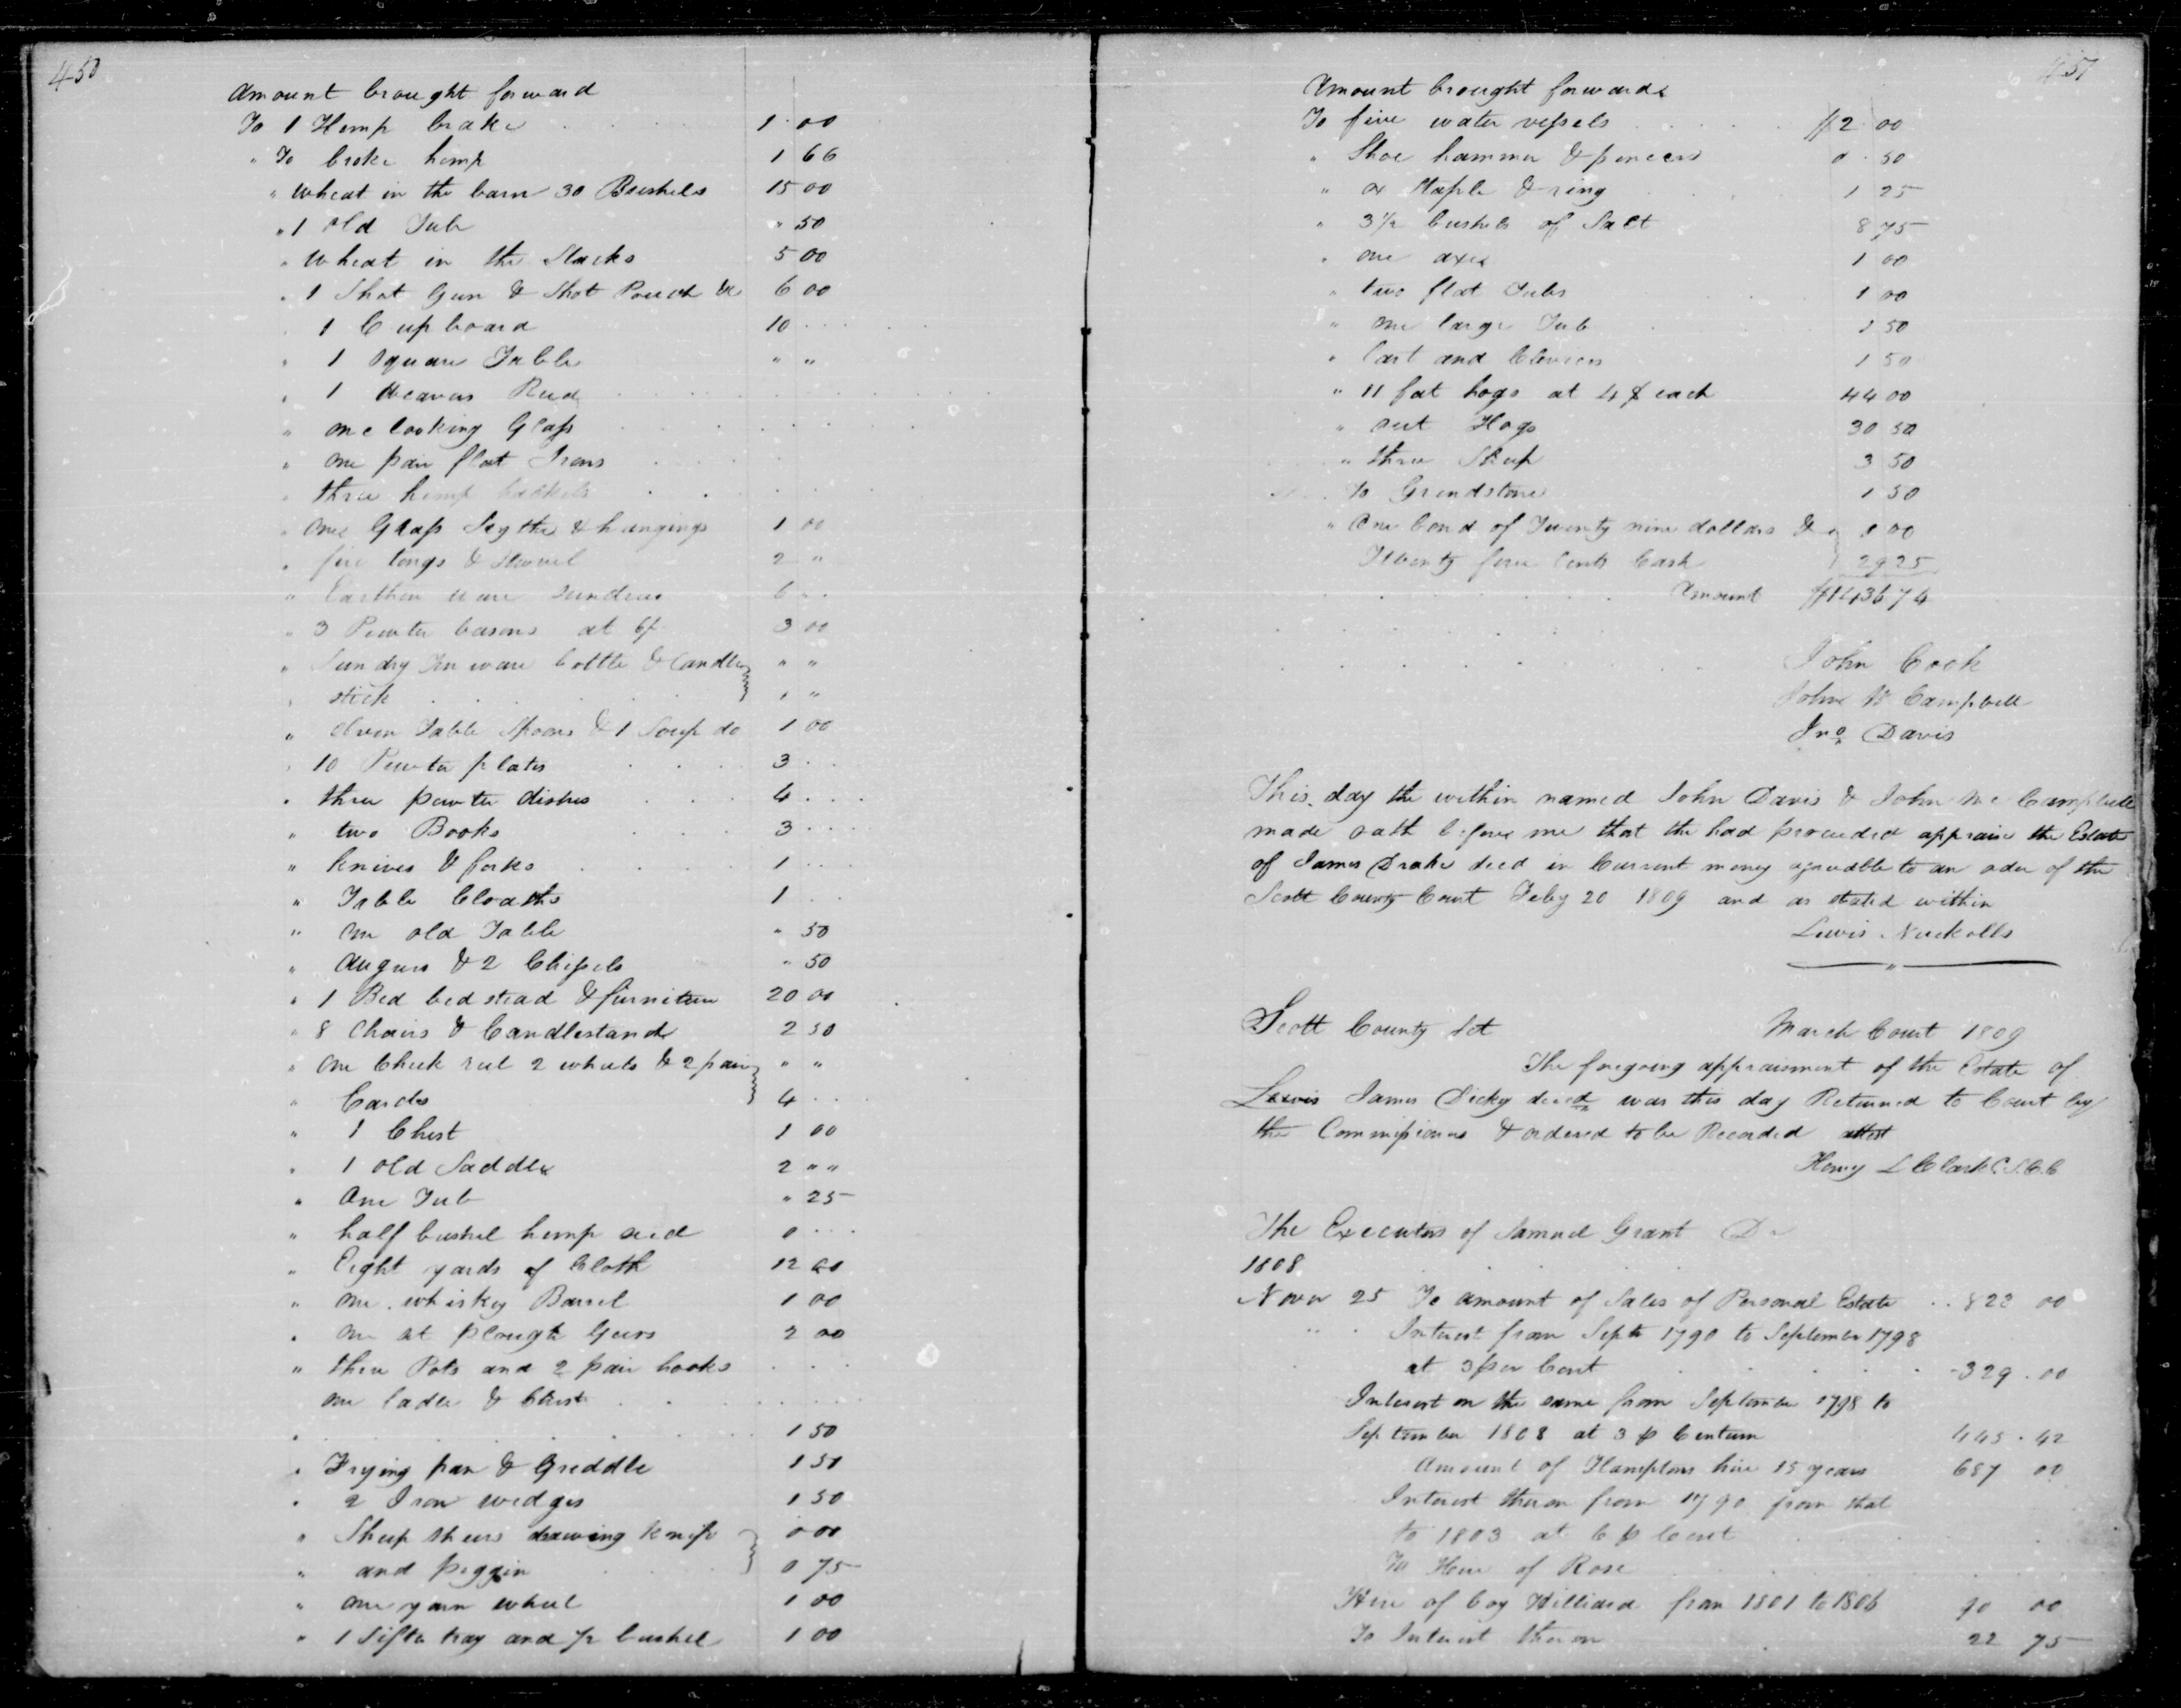 450
Amount brought forward
To 1 Hemp brake 1 00
" To broke hemp 1 66
" Wheat in the barn 30 Bushels 15 00
" 1 old Tub " 50
" Wheat in the Stacks 5 00
" 1 Shot Gun & Shot Pouch &c 6 00
" 1 Cupboard 10
" 1 Square Table " "
" 1 Weavers Reed
" one looking Glass
" one pair flat Irons
" three hemp hackels
" one Grass Scythe & hangings 1 00
" fire tongs & shovel 2 "
" Earthen ware sundries 6
" 3 Pewter basons at 6/ 3 00
" Sundry Tin ware bottle & Candle " "
" stick " "
" eleven Table Spoons & 1 Soup do 1 00
" 10 Pewter plates 3
" three pewter dishes 4
" two Books 3
" knives & forks 1
" Table Cloaths 1
" one old Table " 50
" Augurs & 2 Chissels " 50
" 1 Bed bedstead & furniture 20 00
" 8 Chairs & Candlestand 2 50
" one Check reel 2 wheels & 2 pair " "
" Cards 4
" 1 Chest 1 00
" 1 old Saddle 2 " "
" One Tub " 25
" half bushel hemp seed 0
" Eight yards of Cloth 12 00
" one whiskey Barrel 1 00
" one set plough Gears 2 00
" three Pots and 2 pair hooks
one ladle &
" 1 50
" Frying pan & Griddle 1 50
" 2 Iron wedges 1 50
" Sheep shears drawing knife 0 00
" and piggin 0 75
" one yarn wheel 1 00
" 1 Sifter tray and 1/2 bushel 1 00
451
Amount brought forward
To five water vessels $2 00
" Shoe hammer & pincers 0 50
" ox Staple & ring 1 25
" 3 1/2 bushels of Salt 8 75
" one axe 1 00
" two flat Tubs 1 00
" one large Tub 1 50
" Cart and Clevices 1 50
" 11 fat hogs at 4 $ each 44 00
" out Hogs 30 50
" three Sheep 3 50
To Grindstone 1 50
" One bond of Twenty nine dollars & 0 00
Twenty five Cents Cash 29 25
Amount $1436 74
John Cook
John Mc Campbell
Jno Davis
This day the within named John Davis & John Mc Campbell
made oath before me that the had proceeded appraise the Estate
of James Drake decd in Current money agreeable to an oder of the
Scott County Court Feby 20 1809 and as stated within
Lewis Nuckolls
Scott County Sct March Court 1809
The foregoing appraisment of the Estate of
Lewis James Dicky decd was this day Returned to Court by
the Commissioners & ordered to be Recorded attest
Henry L Clark C.S.C.C
The Executors of Samuel Grant Dr
1808
Novr 25 To amount of Sales of Personal Estate 823 00
Interest from Septr 1790 to September 1798
at 3 per Cent 329 . 00
Interest on the same from September 1798 to
September 1808 at 3 p Centum 445 . 42
Amount of Hamptons hire 15 years 687 00
Interest thereon from 1790 from that
to 1803 at 6 p Cent
To Hire of Rose
Hire of boy Williard from 1801 to 1806 90 00
To Interest thereon 22 75